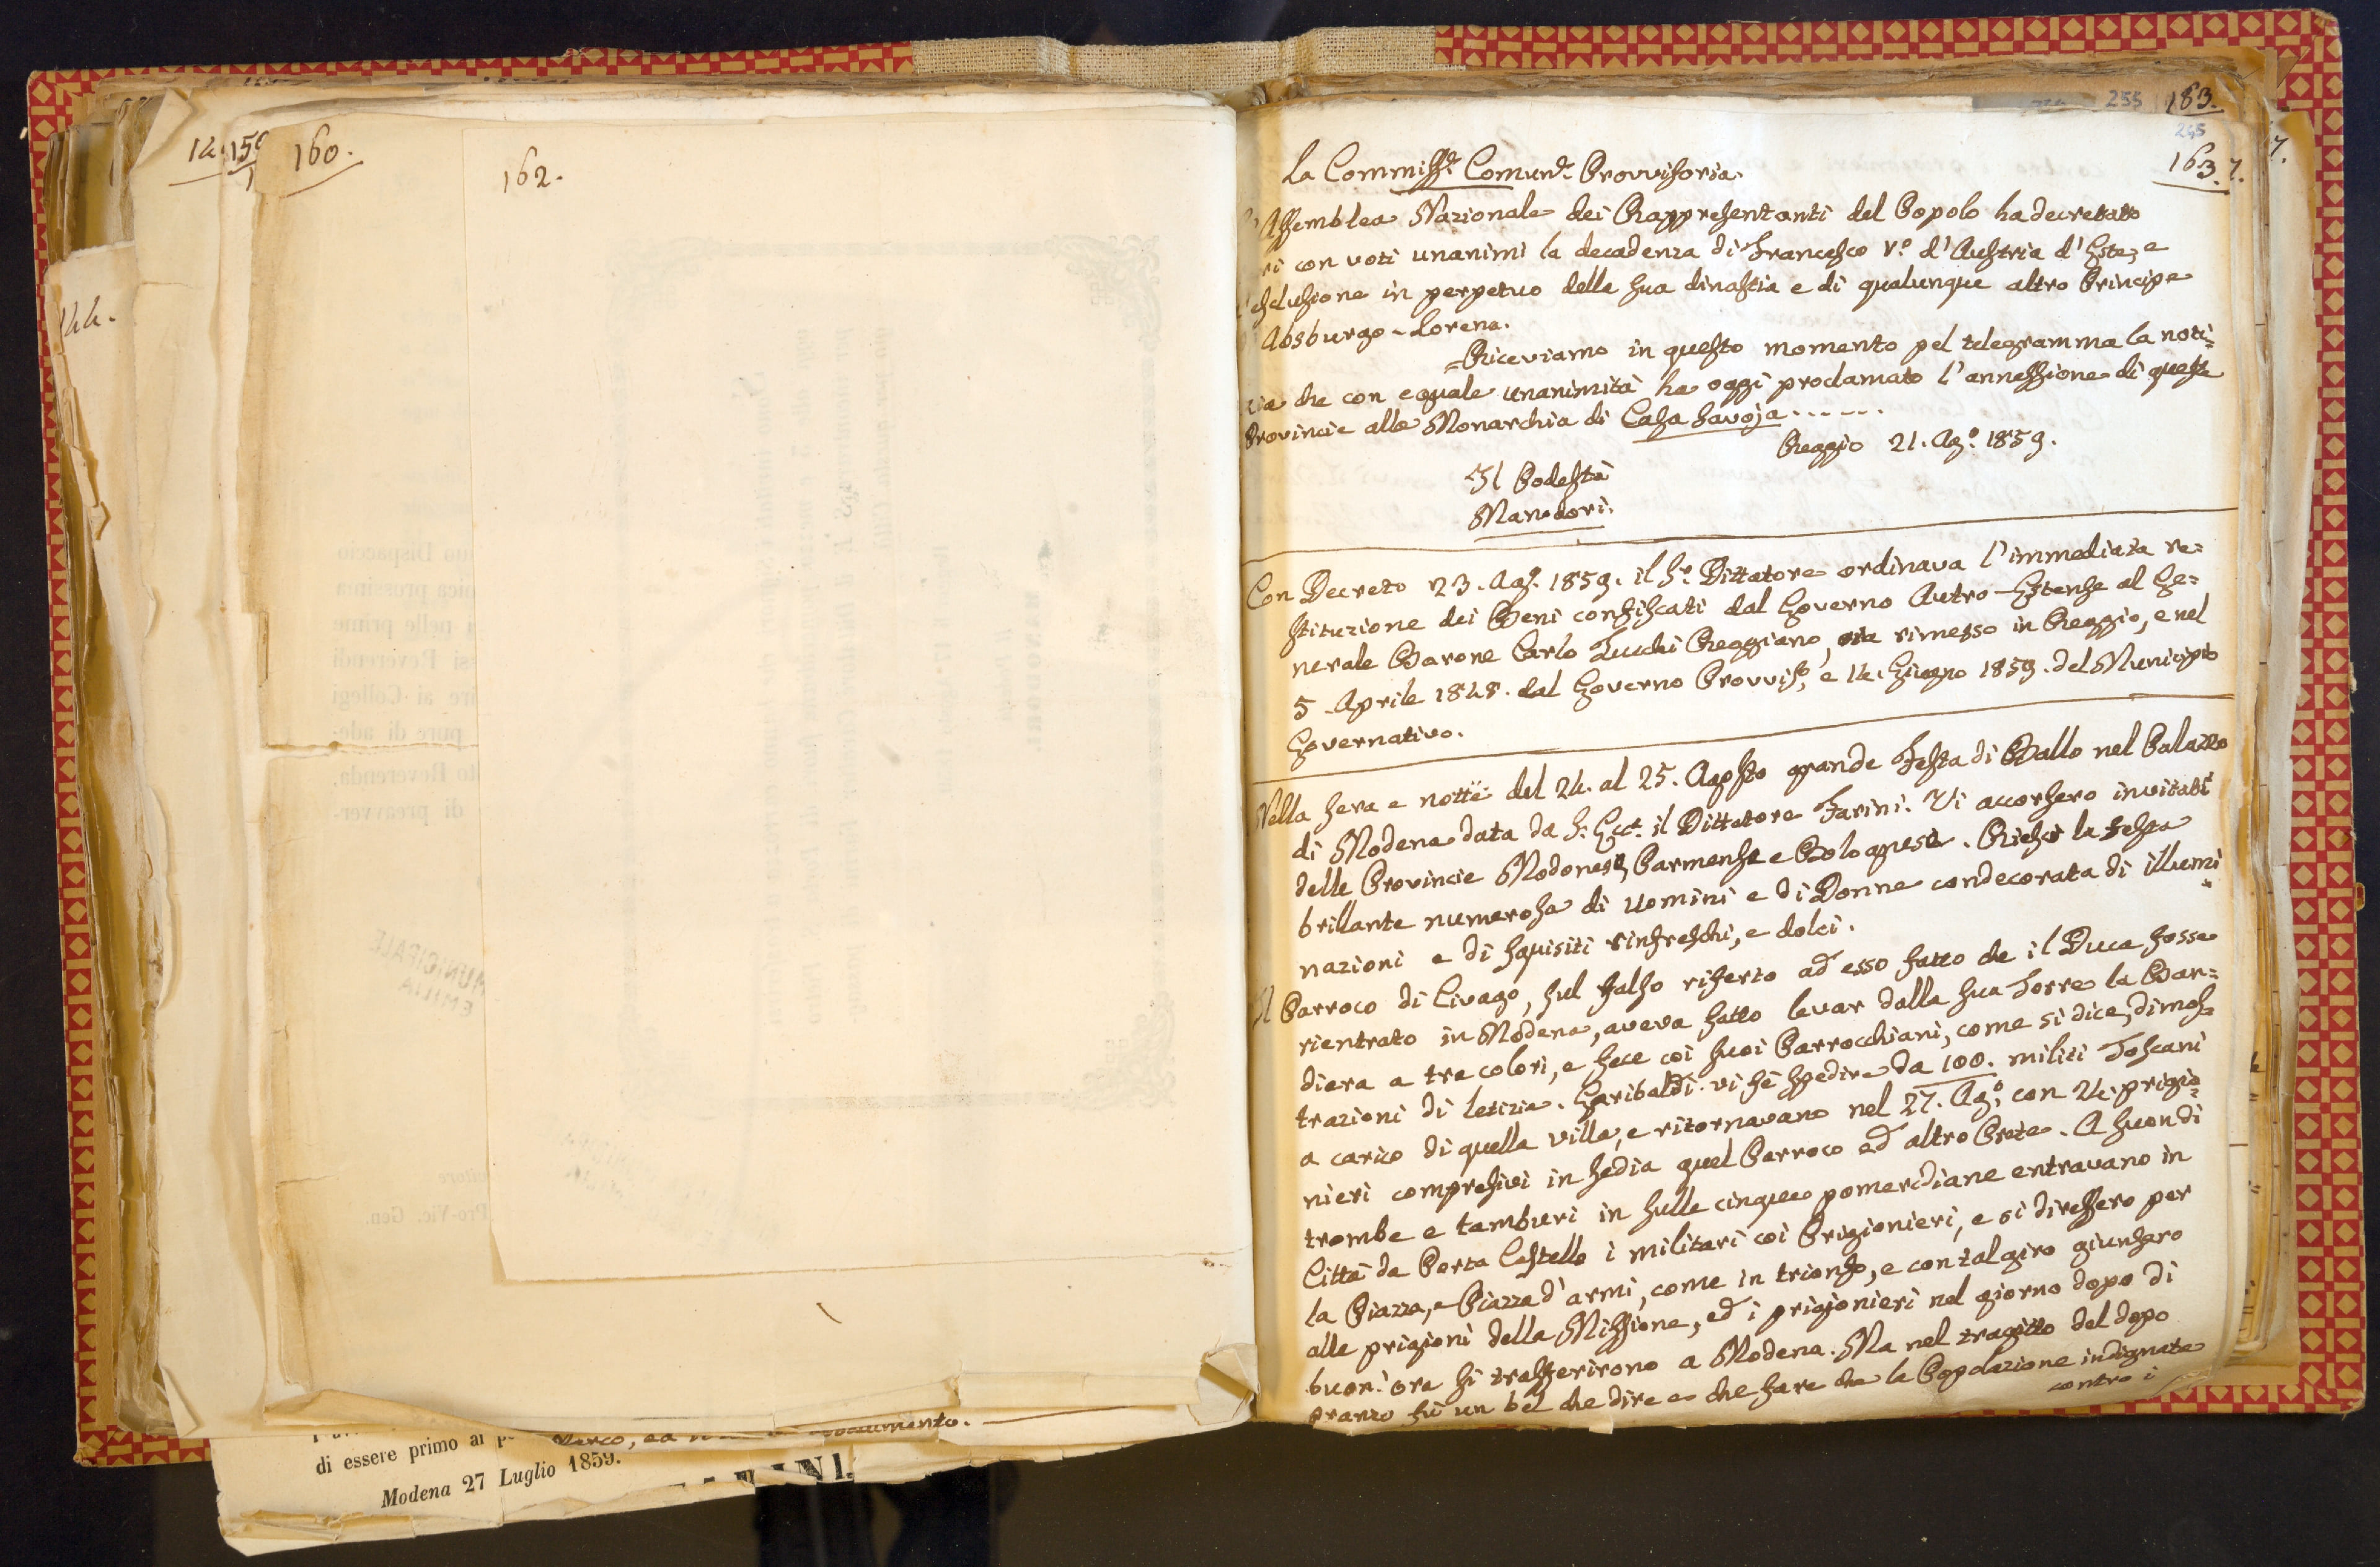 160.
162.
144.
di essere primo ai
Modena 27 Luglio 1859.
255
183.
245
163.
7.
La Commiss.e Comun.e Provvisoria.
Assemblea Nazionale dei Rappresentanti del Popolo ha decretato
ri con voti unanimi la decadenza di Francesco V.o d'Austria d'Este, e
esclusione in perpetuo della sua dinastia e di qualunque altro Principe
Absburgo-Lorena.
=Riceviamo in questo momento pel telegramma la noti=
zia che con eguale unanimità ha oggi proclamato l'annessione di queste
Provincie alla Monarchia di Casa Savoja......
Reggio 21. Ag.o 1859.
Il Podestà
Manodori.
Con Decreto 23. Ag.o 1859. il S.r Dittatore ordinava l'immediata re=
stituzione dei Beni confiscati dal Governo Autro-Estense al Ge=
nerale Barone Carlo Zucchi Reggiano, rimesso in Reggio, e nel
5 Aprile 1848. dal Governo Provvis.o, e 14. Giugno 1859. del Municipio
Governativo.
Nella sera e notte del 24. al 25. Agosto grande Festa di Ballo nel Palazzo
di Modena data da S. Ecc.a il Dittatore Farini. Vi accorsero invitati
delle Provincie Modonese, Parmense e Bolognese. Riescì la festa
brillante numerosa di uomini e di Donne condecorata di illumi=
nazioni e di squisiti rinfreschi, e dolci.
Il Parroco di Civago, sul falso riferto ad esso fatto che il Duca fosse
rientrato in Modena, aveva fatto levar dalla sua Torre la Ban=
diera a tre colori, e fece coi suoi Parrocchiani, come si dice, dimos=
trazioni di letizia. Garibaldi vi fè spedire da 100. militi Toscani
a carico di quella villa, e ritornavano nel 27. Ag.o con 24. prigio=
nieri compresivi in sedia quel Parroco ed altro Prete. A suon di
trombe e tamburi in sulle cinque pomeridiane entravano in
Città da Porta Castello i militari coi Prigionieri, e si diressero per
la Piazza, e Piazza d'armi, come in trionfo, e con tal giro giunsero
alle prigioni della Missione, ed i prigionieri nel giorno dopo di
buon'ora si trasferirono a Modena. Ma nel tragitto del dopo
pranzo fù un bel che dire e che fare che la Popolazione indignata
contro i